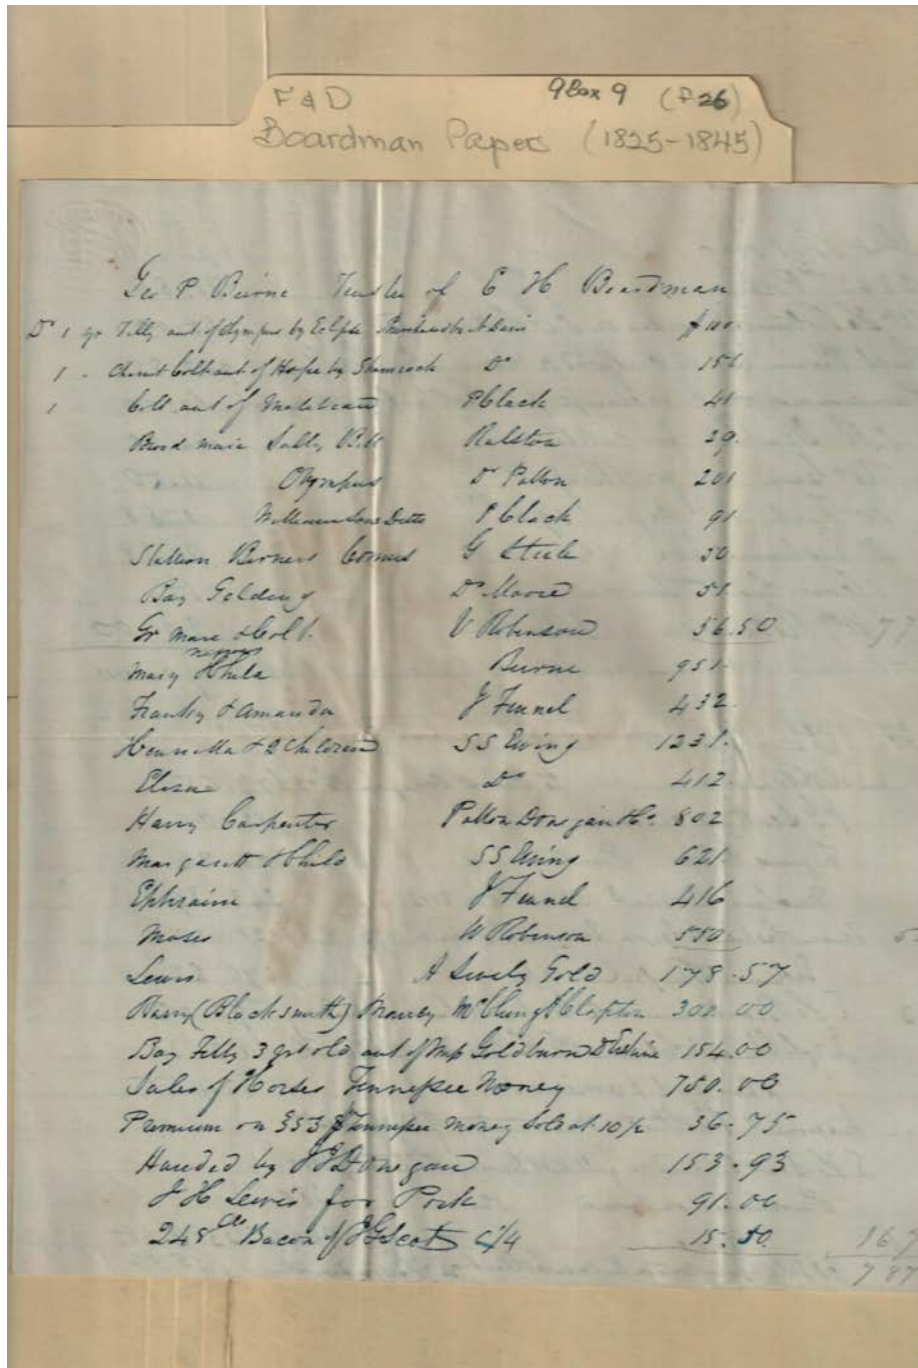 F & D 9Box 9 (f26)
Boardman Papers (1825-1845)
Geo P. Beirne Trustee of E H Boardman
Dr 1 yr Filly out of Olympus by Eclipse Purchased by A Davis $100.
1 - Chesnut Colt out of Hope by Shamrock Do 151
1 Colt out of P Clack 41
Brood mare Sally Bell Ralston 29.
Olympus Dr Patton 201
Williamsons Ditto P Clack 91
Stallion Berners Comus G Steele 50
Bay Gelding Dr Moore 51
Gr mare & Colt. V Robinson 56.50 77
negroes
Mary & Child Beirne 951.
Franky & Amanda J Fennel 432
Henrietta & 2 Children S S Ewing 1231.
Eliza Do 412.
Harry Carpenter Patton Donegan & Co. 802
Margarett & Child S S Ewing 621
Ephraim J Fennel 416
Moses W Robinson 550.
Lewis A Lively Gold 178.57
Harry (Blacksmith) Money McClung & Clopton 300.00
Bay Filly 3 yrs old out of Goldburn 154.00
Sales of Horses Tennessee Money 750.00
Premium on Tennessee money Sold at 10 pc 36.75
Handed by J Donegan 153.93
J H Lewis for Pork 91.00
248 lbs Bacon of J G Scott 6¼ 15.50 167
787